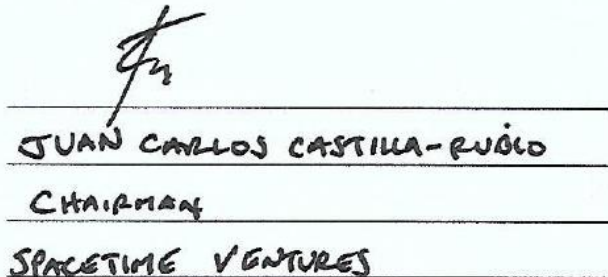 JUAN CARLOS CASTILLA-RUBIO
CHAIRMAN
SPACETIME VENTURES